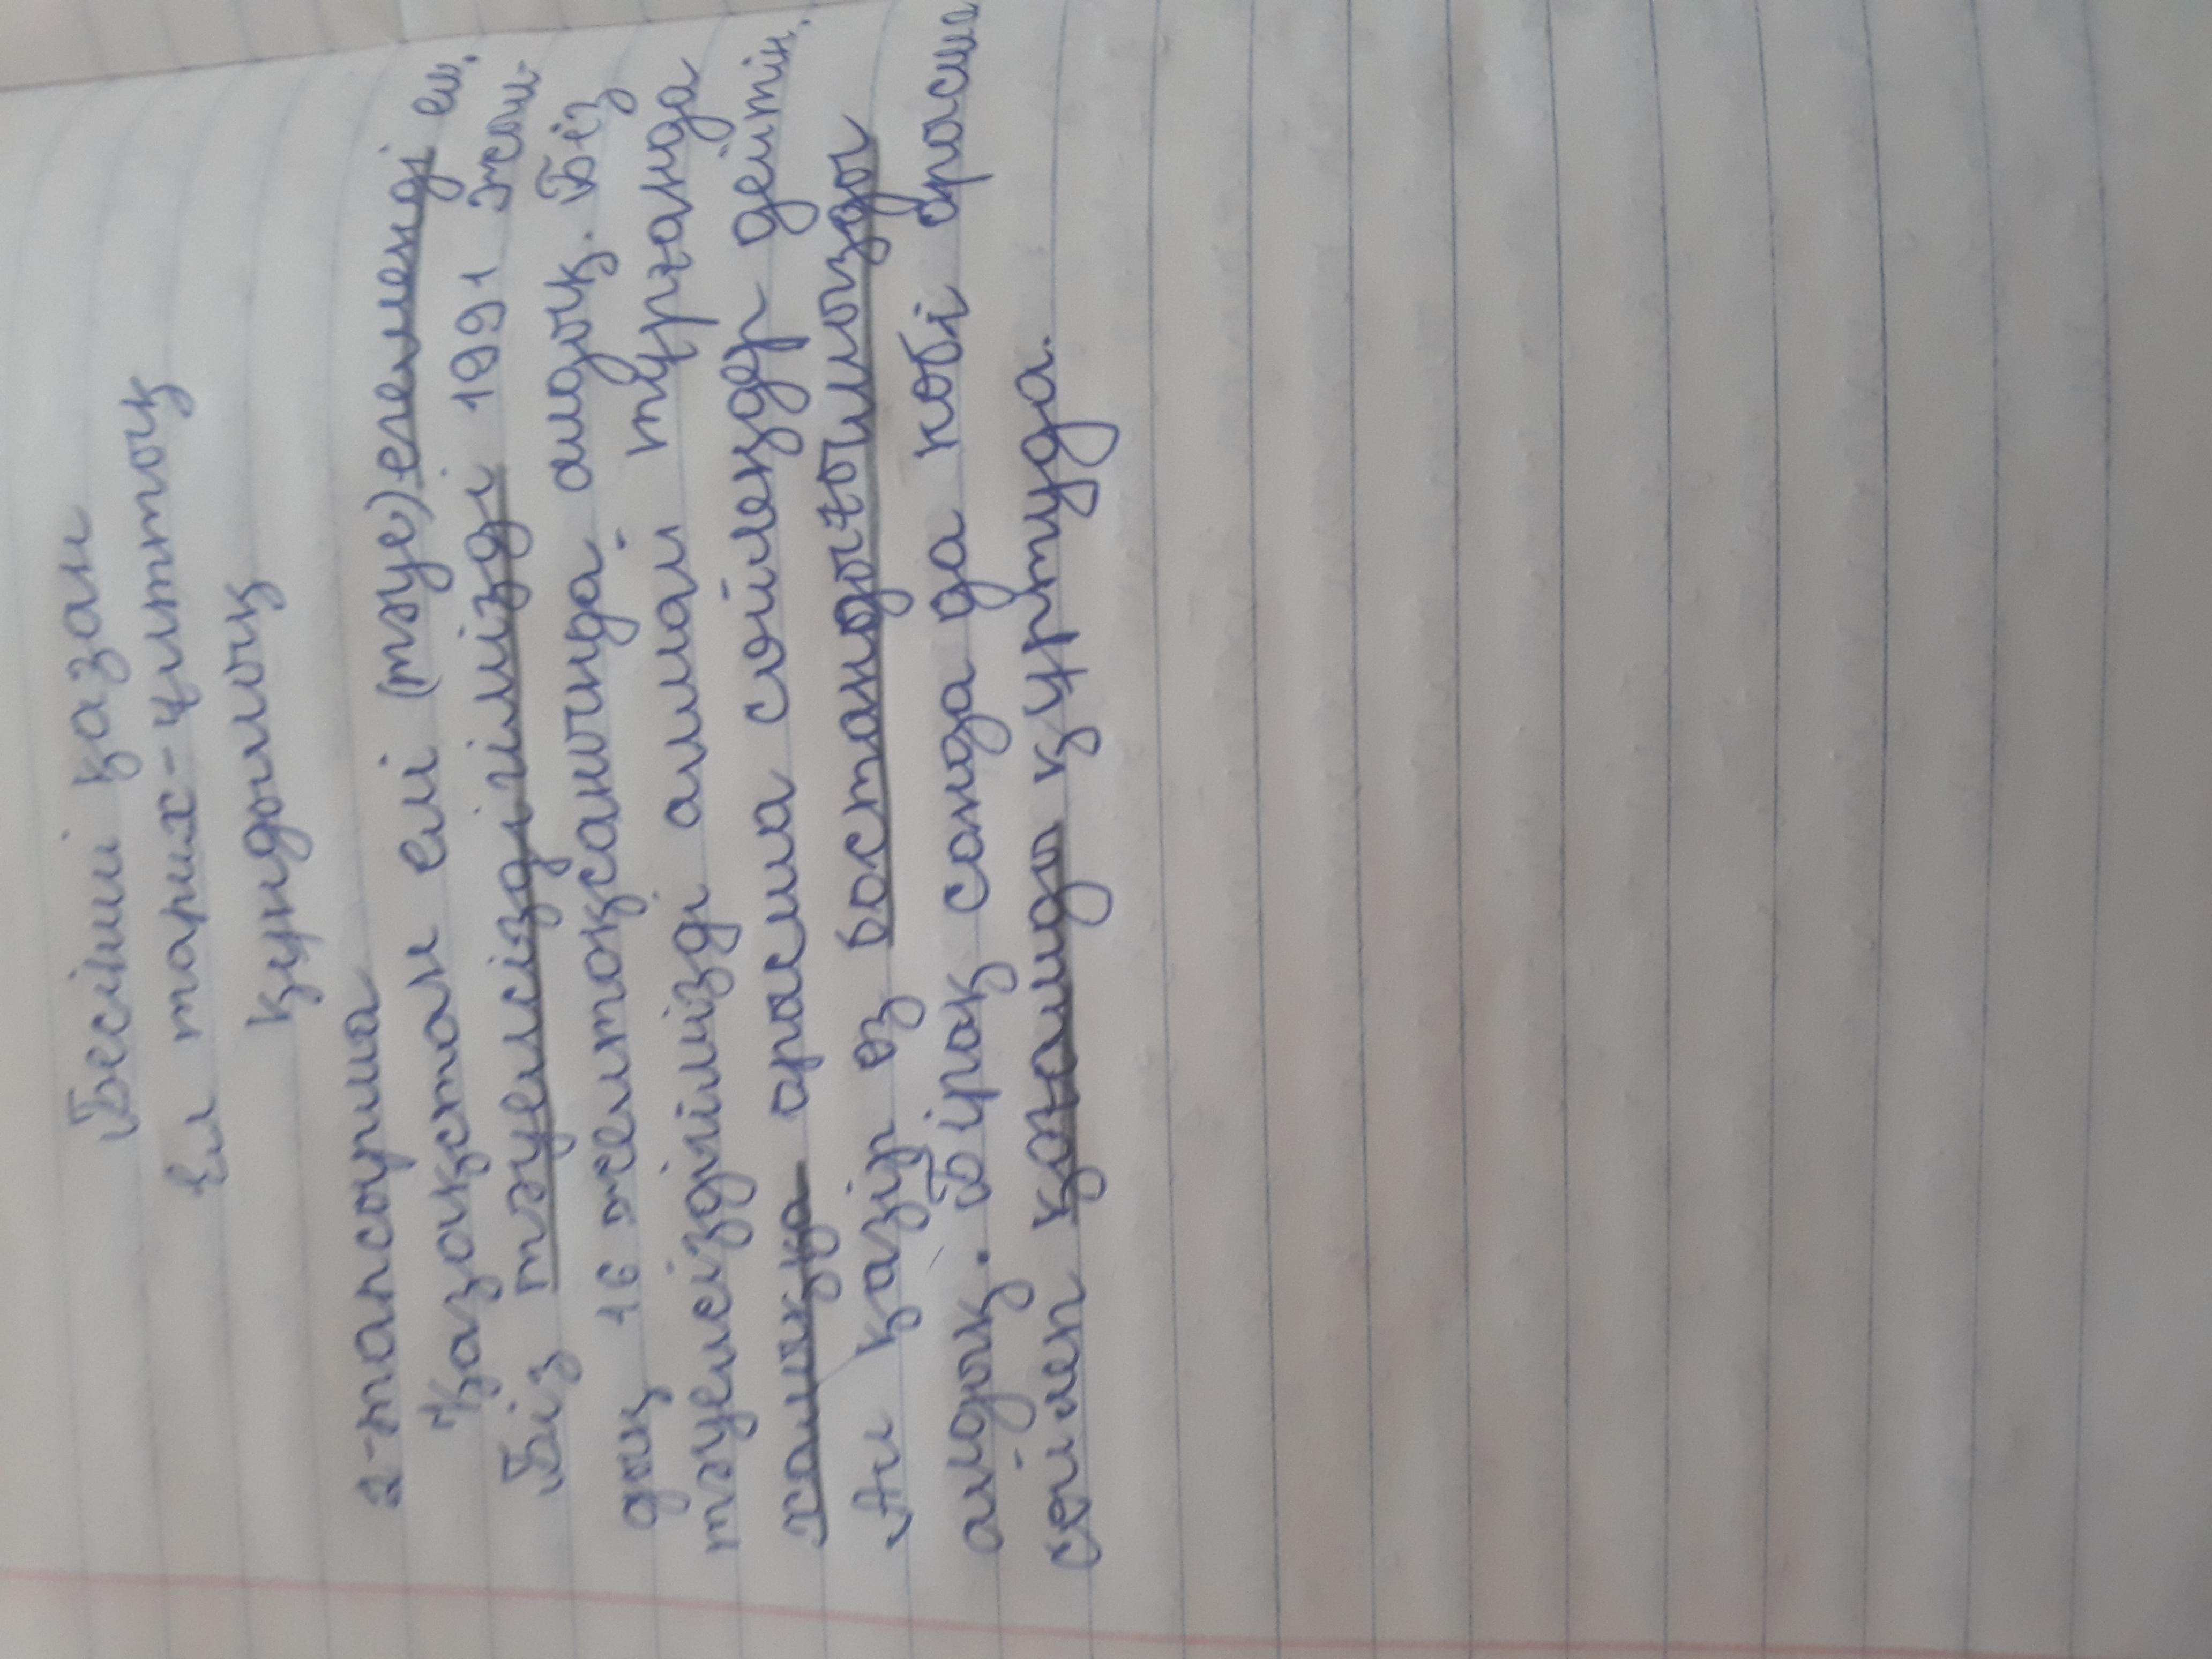 Бесінші қазан
Ел тарих-ұлттық
құндылық
2-тапсырма
Қазақстан елі (тәуе) егеменді ел.
Біз тәуелсіздігімізді 1991 жыл-
дың 16 желтоқсанында алдық. Біз
тәуелсіздігімізді алмай тұрғанда
халыққа орысша сөйлеңдер дейтін.
Ал қазір өз бостандығымызды
алдық. Бірақ сонда да көбі орысша
сөйлеп қоғамды құртуда.